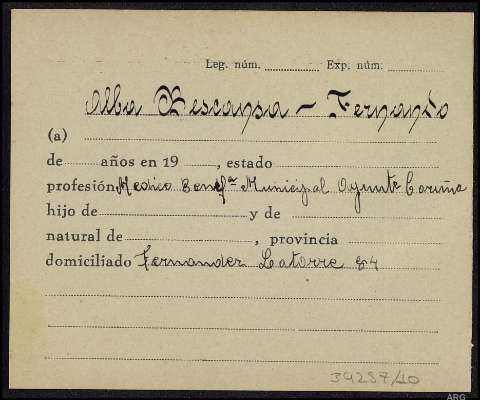 Leg. núm. Exp. núm.
Alba Rescansa - Fernando
(a)
de años en 19 , estado
profesión Medico Benefª Municipal Ayuntº Coruña
hijo de y de
natural de , provincia
domiciliado Fernandez Latorre 84
34287/10
ARG